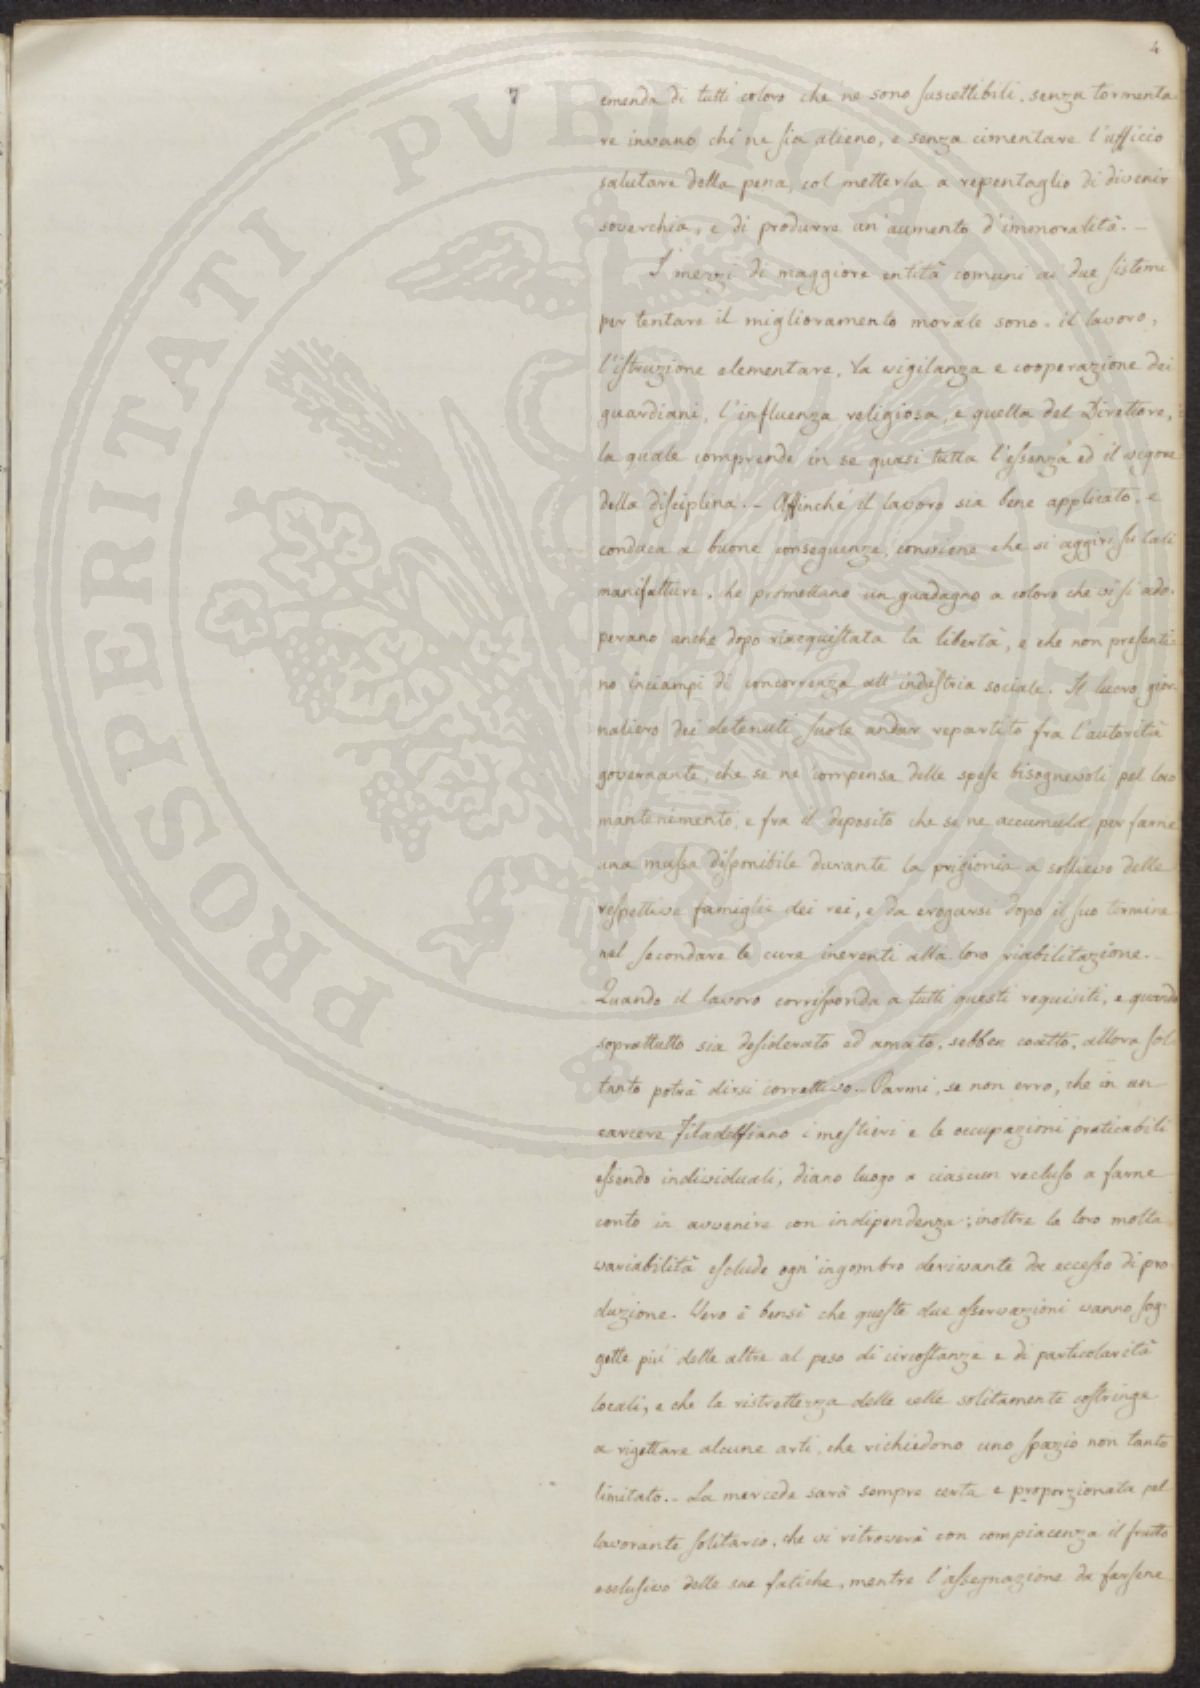 4
7
emenda di tutti coloro che ne sono suscettibili, senza tormenta
re invano chi ne sia alieno, e senza cimentare l'ufficio
salutare della pena, col metterla a repentaglio di divenir
soverchia, e di produrre un'aumento d'immoralità. –
I mezzi di maggiore entità comuni ai due sistemi
per tentare il miglioramento morale sono. il lavoro,
l'istruzione elementare, la vigilanza e cooperazione dei
guardiani, l'influenza religiosa, e quella del Direttore,
la quale comprende in se quasi tutta l'essenza ed il vigore
della disciplina. – Affinchè il lavoro sia bene applicato, e
conduca a buone conseguenze, conviene che si aggiri su tali
manifatture, che promettano un guadagno a coloro che vi si ado-
perano anche dopo riacquistata la libertà, e che non presenti-
no inciampi di concorrenza all'industria sociale. Il lucro gior-
naliero dei detenuti suole andar repartito fra l'autorità
governante, che se ne compensa delle spese bisognevoli pel loro
mantenimento, e fra il deposito che se ne accumula per farne
una massa disponibile durante la prigionia a sollievo delle
respettive famiglie dei rei, e da erogarsi dopo il suo termine
nel secondare le cure inerenti alla loro riabilitazione. –
Quando il lavoro corrisponda a tutti questi requisiti, e quando
soprattutto sia desiderato ed amato, sebben coatto, allora sol-
tanto potrà dirsi correttivo. – Parmi, se non erro, che in un
carcere Filadelfiano i mestieri e le occupazioni praticabili
essendo individuali, diano luogo a ciascun recluso a farne
conto in avvenire con indipendenza; inoltre la loro molta
variabilità esclude ogn'ingombro derivante da eccesso di pro-
duzione. Vero è bensì che queste due osservazioni vanno sog-
gette più delle altre al peso di circostanze e di particolarità
locali, e che la ristrettezza delle celle solitamente costringe
a rigettare alcune arti, che richiedono uno spazio non tanto
limitato. – La mercede sarà sempre certa e proporzionata pel
lavorante solitario, che vi ritroverà con compiacenza il frutto
esclusivo delle sue fatiche, mentre l'assegnazione da farsene
PROSPERITATI PVBLICAE